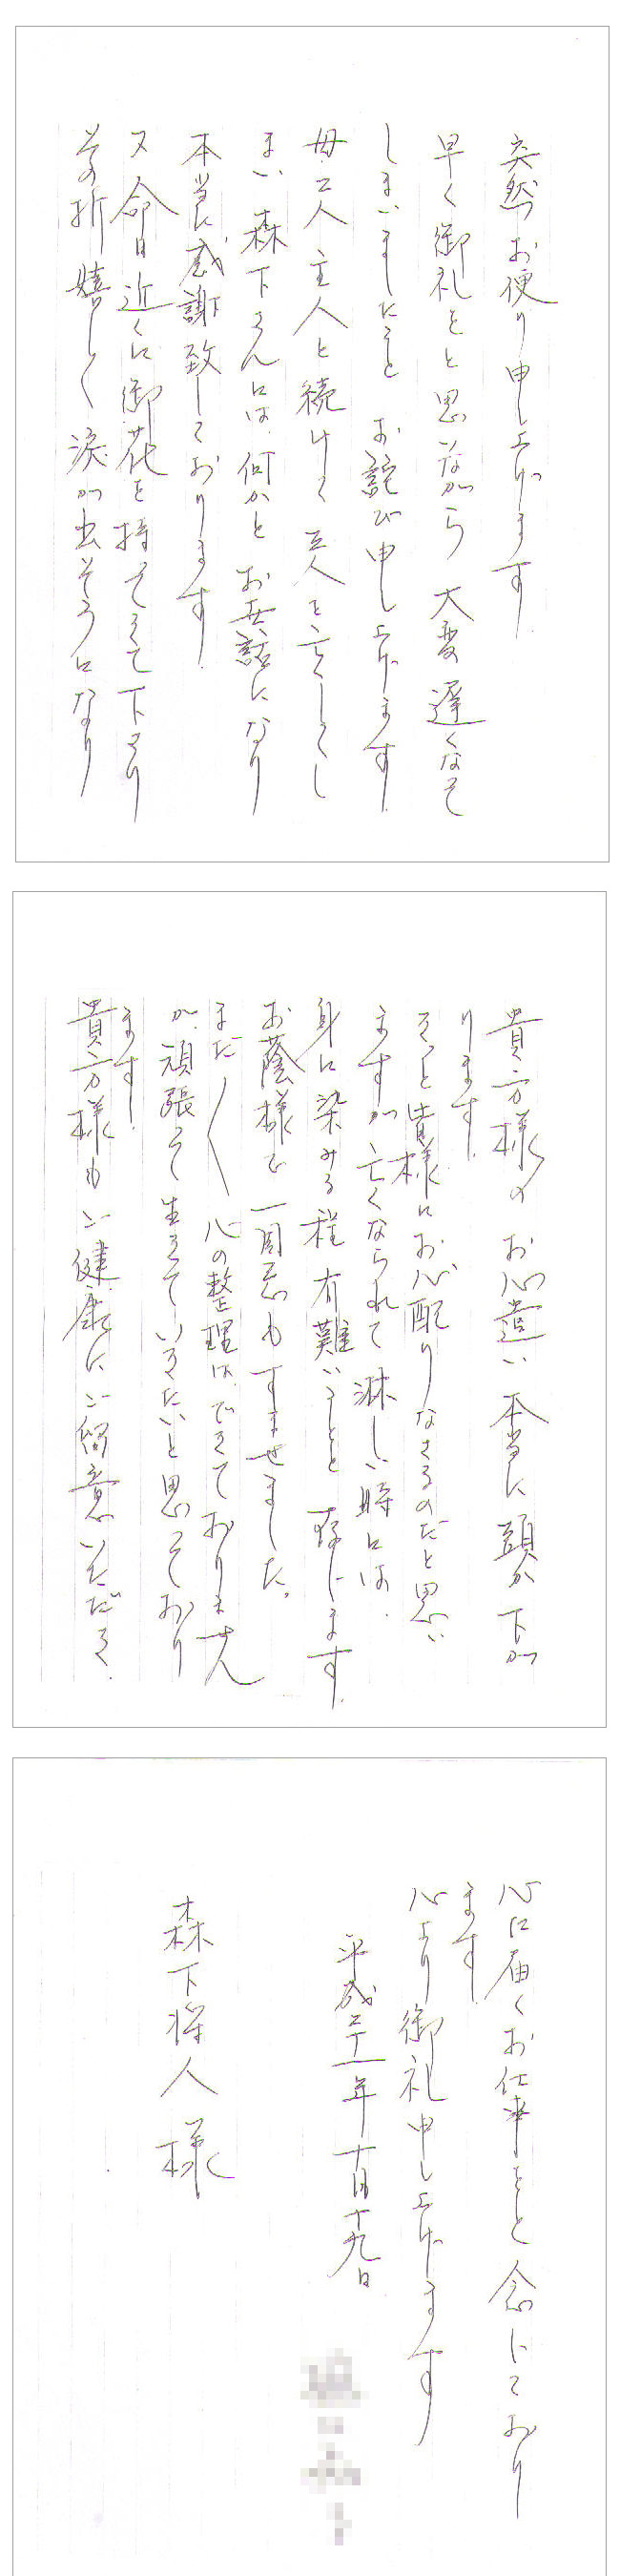 突然お便り申し上げます
早く御礼をと思いながら 大変遅くなって
しまいましたこと お詫び申し上げます
母二人 主人と続けて 三人を亡くしてし
まい 森下さんには 何かと お世話になり
本当に感謝致しております
又 命日近くに御花を持ってきて下さり
その折 嬉しく 涙が出そうになり
貴方様の お心遣い 本当に 頭が 下が
ります
きっと皆様にお心配りなさるのだと思い
ますが 亡くなられて 淋しい時には
身に染みる程 有難いことと 存じます
お蔭様で 一周忌も すませました。
まだ〱 心の整理は できて おりません
が 頑張って 生きて いきたいと 思って おり
ます
貴方様も ご健康に ご留意いただき
心に届く お仕事をと 念じて おり
ます
心より 御礼申し上げます
平成二十一年 十月 十九日
森下 様